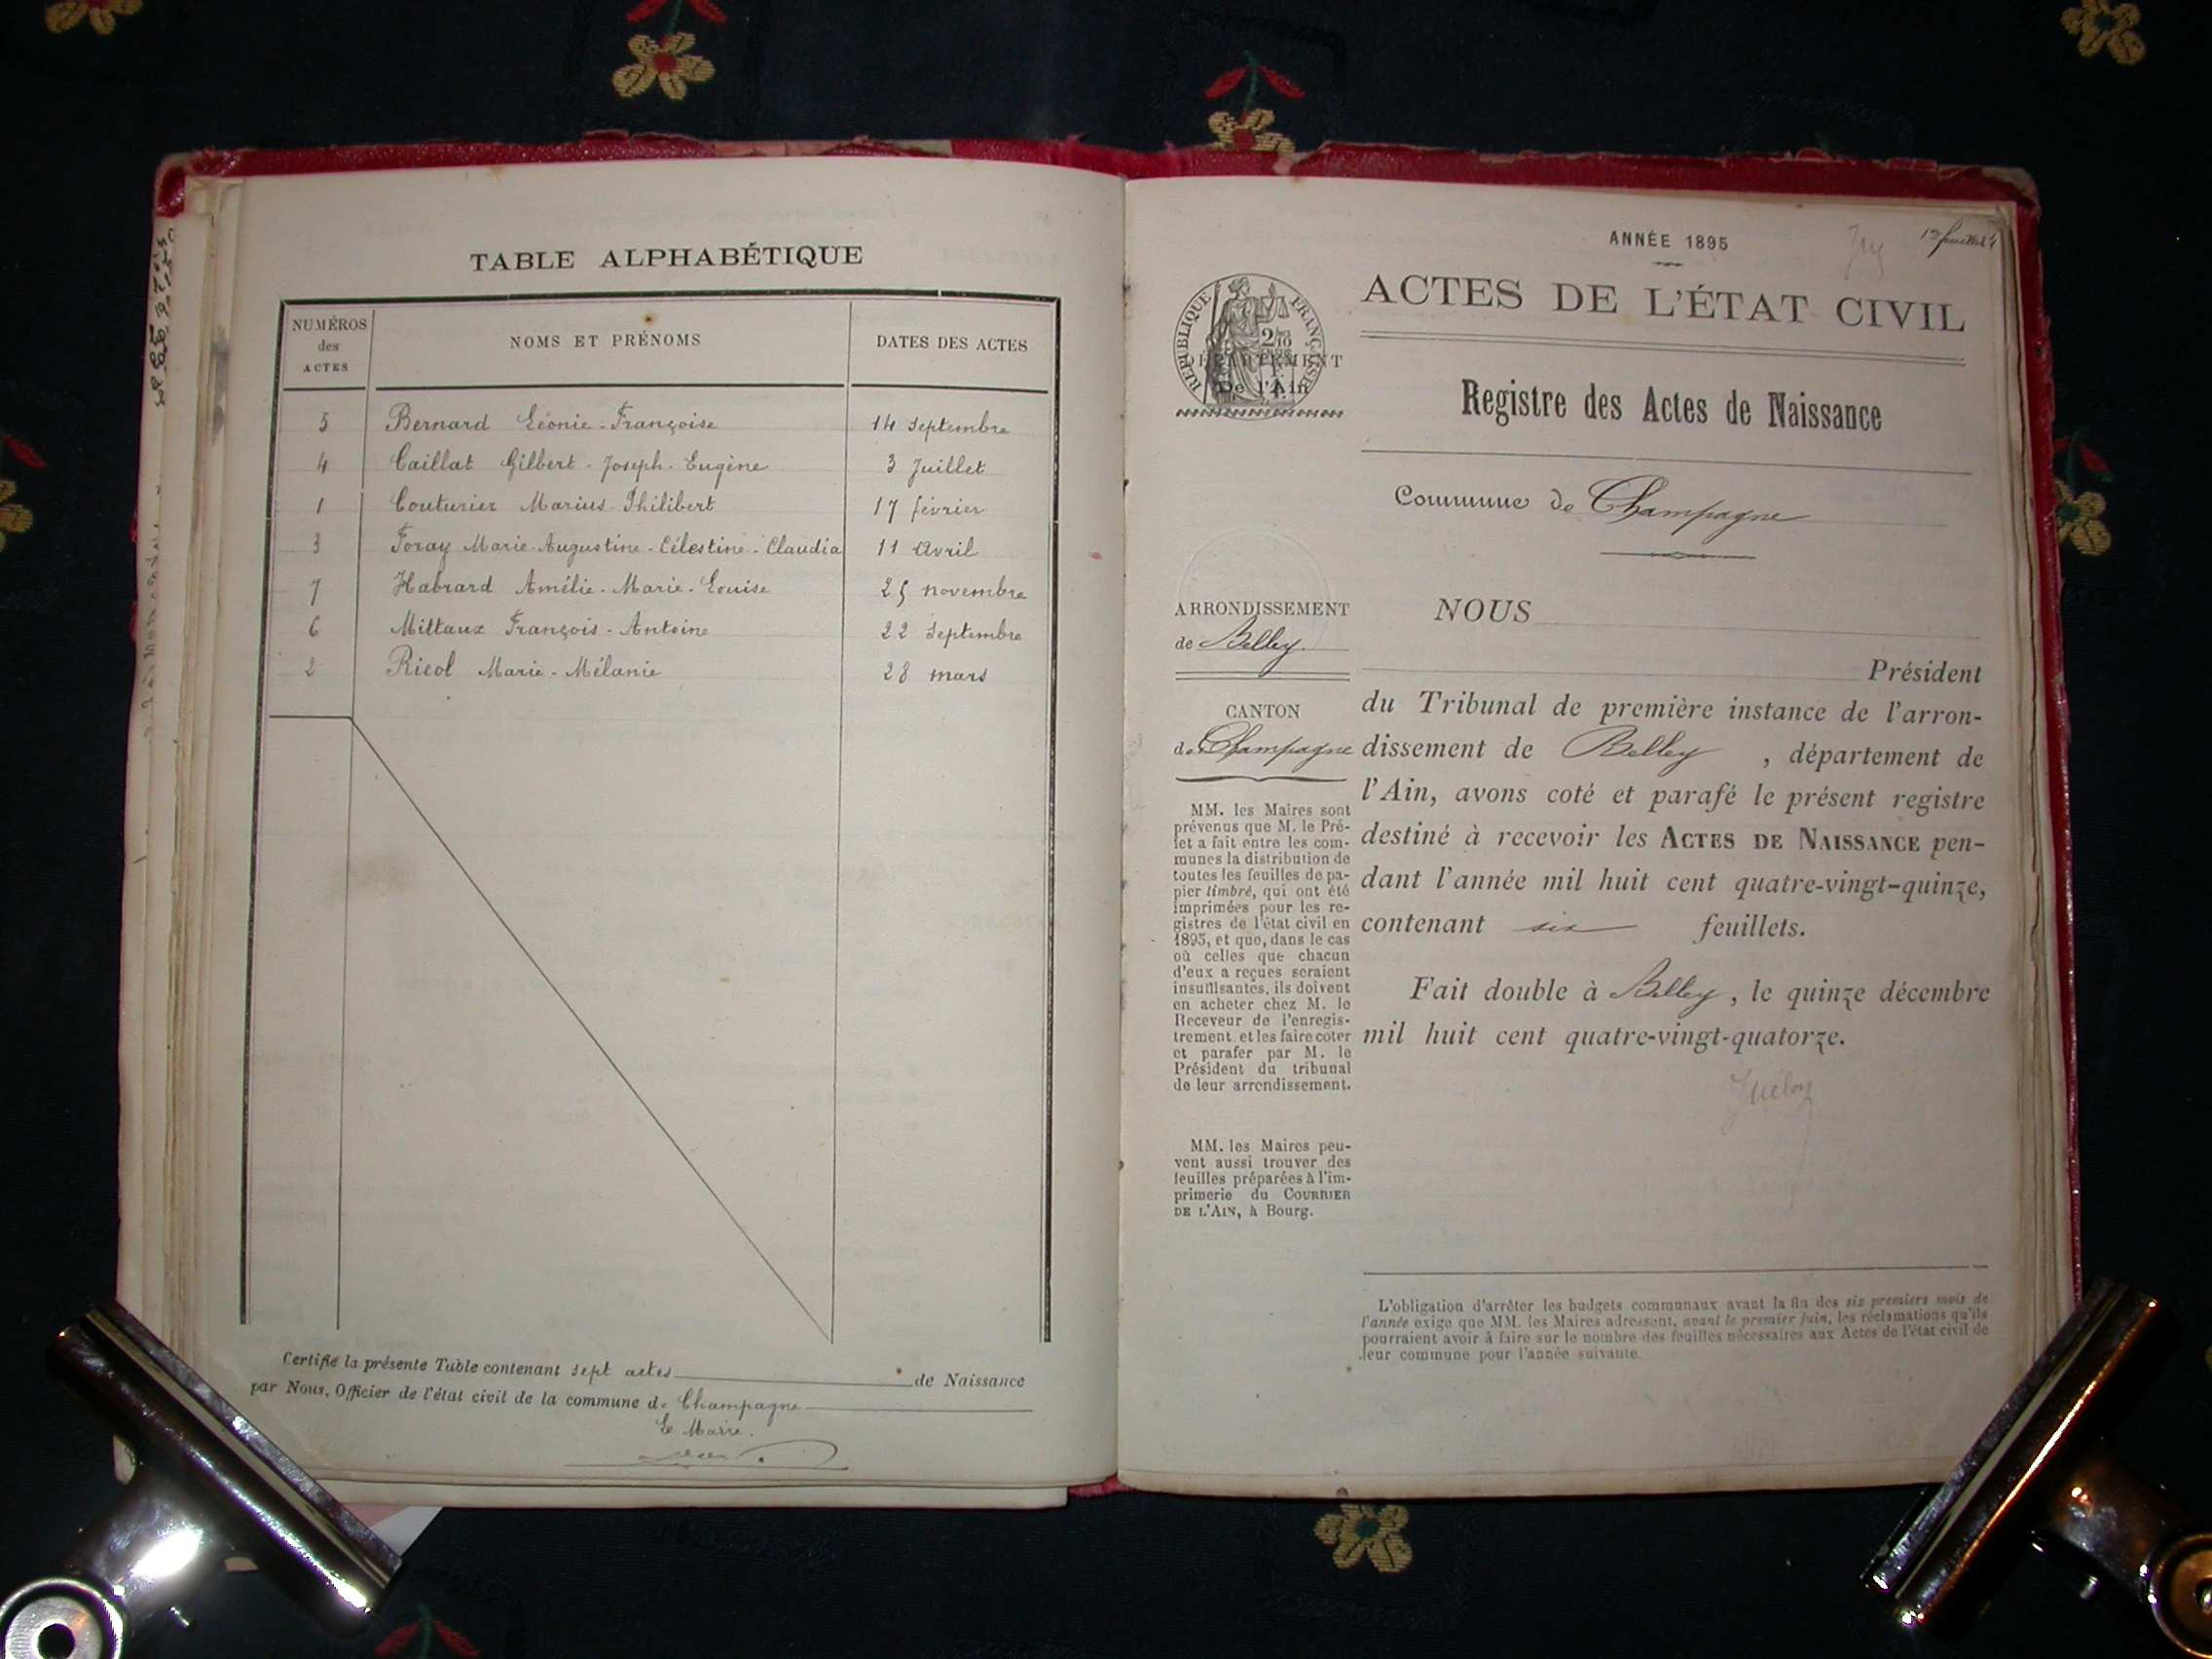 TABLE ALPHABÉTIQUE
NUMÉROS
des
ACTES
NOMS ET PRÉNOMS
DATES DES ACTES
5 Bernard Léonie-Françoise 14 septembre
4 Caillat Gilbert-Joseph-Eugène 3 Juillet
1 Couturier Marius-Philibert 17 février
3 Foray Marie-Augustine-Célestine-Claudia 11 Avril
7 Habrard Amélie-Marie-Louise 25 novembre
6 Mittaux François-Antoine 22 septembre
2 Ricol Marie-Mélanie 28 mars
Certifié la présente Table contenant sept actes de Naissance
par Nous, Officier de l'état civil de la commune de Champagne
Le Maire.
ANNÉE 1895
ACTES DE L'ÉTAT CIVIL
RÉPUBLIQUE FRANÇAISE
DÉPARTEMENT
De l'Ain
Registre des Actes de Naissance
Commune de Champagne
ARRONDISSEMENT
de Belley.
CANTON
de Champagne
MM. les Maires sont
prévenus que M. le Pré-
fet a fait entre les com-
munes la distribution de
toutes les feuilles de pa-
pier timbré, qui ont été
imprimées pour les re-
gistres de l'état civil en
1895, et que, dans le cas
où celles que chacun
d'eux a reçues seraient
insuffisantes, ils doivent
en acheter chez M. le
Receveur de l'enregis-
trement et les faire coter
et parafer par M. le
Président du tribunal
de leur arrondissement.
MM. les Maires peu-
vent aussi trouver des
feuilles préparées à l'im-
primerie du COURRIER
DE L'AIN, à Bourg.
NOUS
Président
du Tribunal de première instance de l'arron-
dissement de Belley, département de
l'Ain, avons coté et parafé le présent registre
destiné à recevoir les ACTES DE NAISSANCE pen-
dant l'année mil huit cent quatre-vingt-quinze,
contenant six feuillets.
Fait double à Belley, le quinze décembre
mil huit cent quatre-vingt-quatorze.
L'obligation d'arrêter les budgets communaux avant la fin des six premiers mois de
l'année exige que MM. les Maires adressent, avant le premier juin, les réclamations qu'ils
pourraient avoir à faire sur le nombre des feuilles nécessaires aux Actes de l'état civil de
leur commune pour l'année suivante.